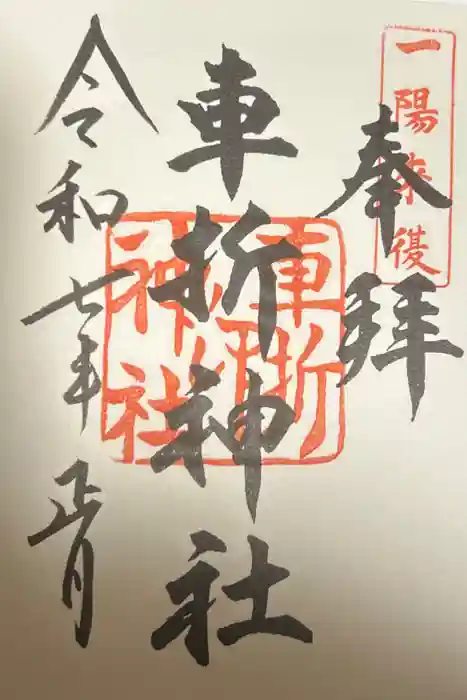 一陽来復
奉拝
車折神社
令和七年正月
車折
神社